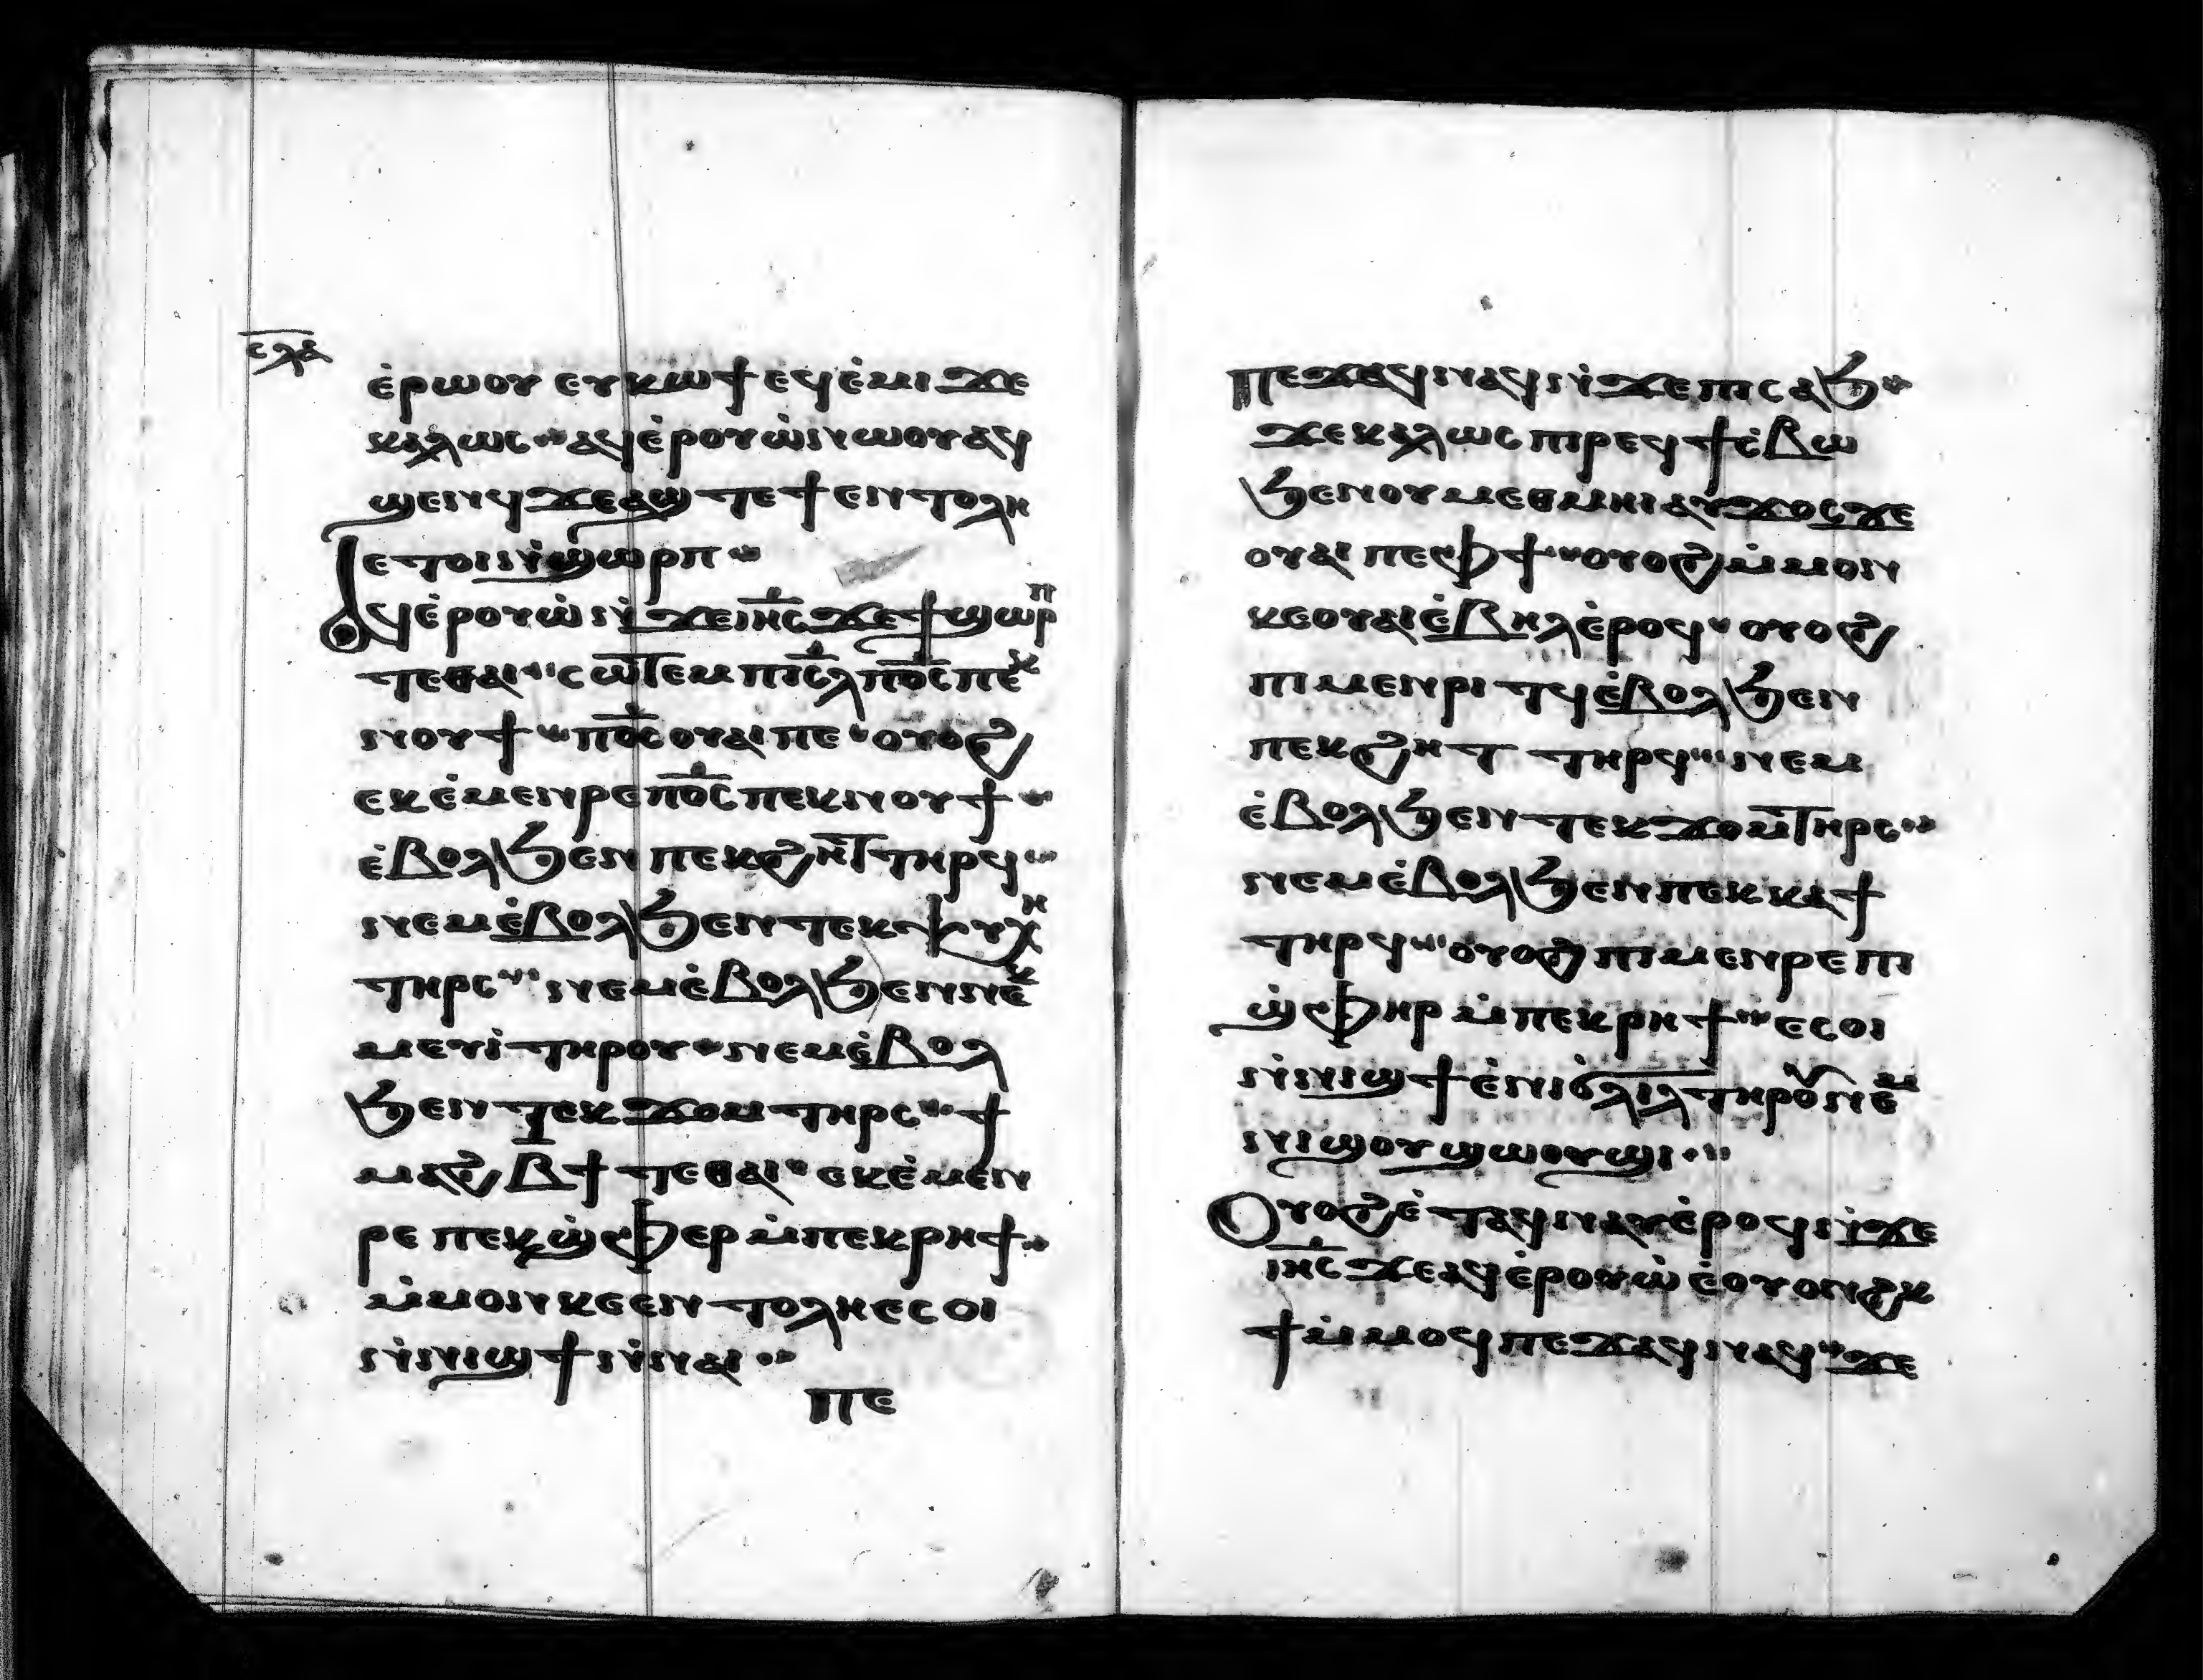 ⲥⲗⲁ
ⲉ̇ⲣⲱⲟⲩ ⲉⲩⲕⲱϯ ⲉϥⲉ̇ⲙⲓ ϫⲉ
ⲕⲁⲗⲱⲥ ⲁϥⲉ̇ⲣⲟⲩⲱ̇ ⲛⲱⲟⲩ ⲁϥ
ϣⲉⲛϥ ϫⲉ ⲁϣ ⲧⲉ ϯⲉⲛⲧⲟⲗⲏ
ⲉⲧⲟⲓ ⲛ̇ϣⲱⲣⲡ
Ⲁϥⲉ̇ⲣⲟⲩⲱ̇ ⲛ̇ϫⲉ ⲓⲏ̅ⲥ̅ ϫⲉ ϯϣⲱⲣⲡ
ⲧⲉ ⲑⲁⲓ ⲥⲱⲧⲉⲙ ⲡⲓⲥ̅ⲗ̅ ⲡⲟ̅ⲥ̅ ⲡⲉⲕ
ⲛⲟⲩϯ ⲡⲟ̅ⲥ̅ ⲟⲩⲁⲓ ⲡⲉ ⲟⲩⲟϩ
ⲉⲕⲉ̇ⲙⲉⲛⲣⲉ ⲡⲟ̅ⲥ̅ ⲡⲉⲕⲛⲟⲩϯ
ⲉ̇ⲃⲟⲗ ϧⲉⲛ ⲡⲉⲕϩⲏⲧ ⲧⲏⲣϥ
ⲛⲉⲙ ⲉ̇ⲃⲟⲗ ϧⲉⲛ ⲧⲉⲕⲯⲩⲭⲏ
ⲧⲏⲣⲥ ⲛⲉⲙ ⲉ̇ⲃⲟⲗ ϧⲉⲛ ⲛⲉⲕ
ⲙⲉⲩⲓ̇ ⲧⲏⲣⲟⲩ ⲛⲉⲙ ⲉ̇ⲃⲟⲗ
ϧⲉⲛ ⲧⲉⲕϫⲟⲙ ⲧⲏⲣⲥ ϯ
ⲙⲁϩⲃ̅ϯ ⲧⲉ ⲑⲁⲓ ⲉⲕⲉ̇ⲙⲉⲛ
ⲣⲉ ⲡⲉⲕϣ̇ⲫⲉⲣ ⲙ̇ⲡⲉⲕⲣⲏϯ
ⲙ̇ⲙⲟⲛ ⲕⲉⲉⲛⲧⲟⲗⲏ ⲉⲥⲟⲓ
ⲛ̇ⲛⲓϣϯ ⲛ̇ⲛⲁⲓ
ⲡⲉ
Ⲡⲉϫⲁϥ ⲛⲁϥ ⲛ̇ϫⲉ ⲡⲓⲥⲁϧ
ϫⲉ ⲕⲁⲗⲱⲥ ⲡⲓⲣⲉϥϯⲥ̇ⲃⲱ
ϧⲉⲛ ⲟⲩⲙⲉⲑⲙⲏⲓ ⲁⲩϫⲟⲥ ϫⲉ
ⲟⲩⲁⲓ ⲡⲉ ⲫϯ ⲟⲩⲟϩ ⲙ̇ⲙⲟⲛ
ⲕⲉⲟⲩⲁⲓ ⲉ̇ⲃⲏⲗ ⲉ̇ⲣⲟϥ ⲟⲩⲟϩ
ⲡⲓⲙⲉⲛⲣⲓⲧϥ ⲉ̇ⲃⲟⲗ ϧⲉⲛ
ⲡⲉⲕϩⲏⲧ ⲧⲏⲣϥ ⲛⲉⲙ
ⲉ̇ⲃⲟⲗ ϧⲉⲛ ⲧⲉⲕϫⲟⲙ ⲧⲏⲣⲥ
ⲛⲉⲙ ⲉ̇ⲃⲟⲗ ϧⲉⲛ ⲡⲉⲕⲕⲁϯ
ⲧⲏⲣϥ ⲟⲩⲟϩ ⲡⲓⲙⲉⲛⲣⲉ ⲡⲓ
ϣ̇ⲫⲏⲣ ⲙ̇ⲡⲉⲕⲣⲏϯ ⲉⲥⲟⲓ
ⲛ̇ⲛⲓϣϯ ⲉ̇ⲛⲓϭⲗⲓⲗ ⲧⲏⲣⲟⲩ ⲛⲉⲙ
ⲛⲓϣⲟⲩϣⲱⲟⲩϣⲓ
Ⲟⲩⲟϩ ⲉ̇ⲧⲁϥⲛⲁⲩ ⲉ̇ⲣⲟϥ ⲛ̇ϫⲉ
ⲓⲏ̅ⲥ̅ ϫⲉ ⲁϥⲉ̇ⲣⲟⲩⲱ̇ ⲉ̇ⲟⲩⲟⲛϩⲕ
ϯ ⲙ̇ⲙⲟϥ ⲡⲉϫⲁϥ ⲛⲁϥ ϫⲉ